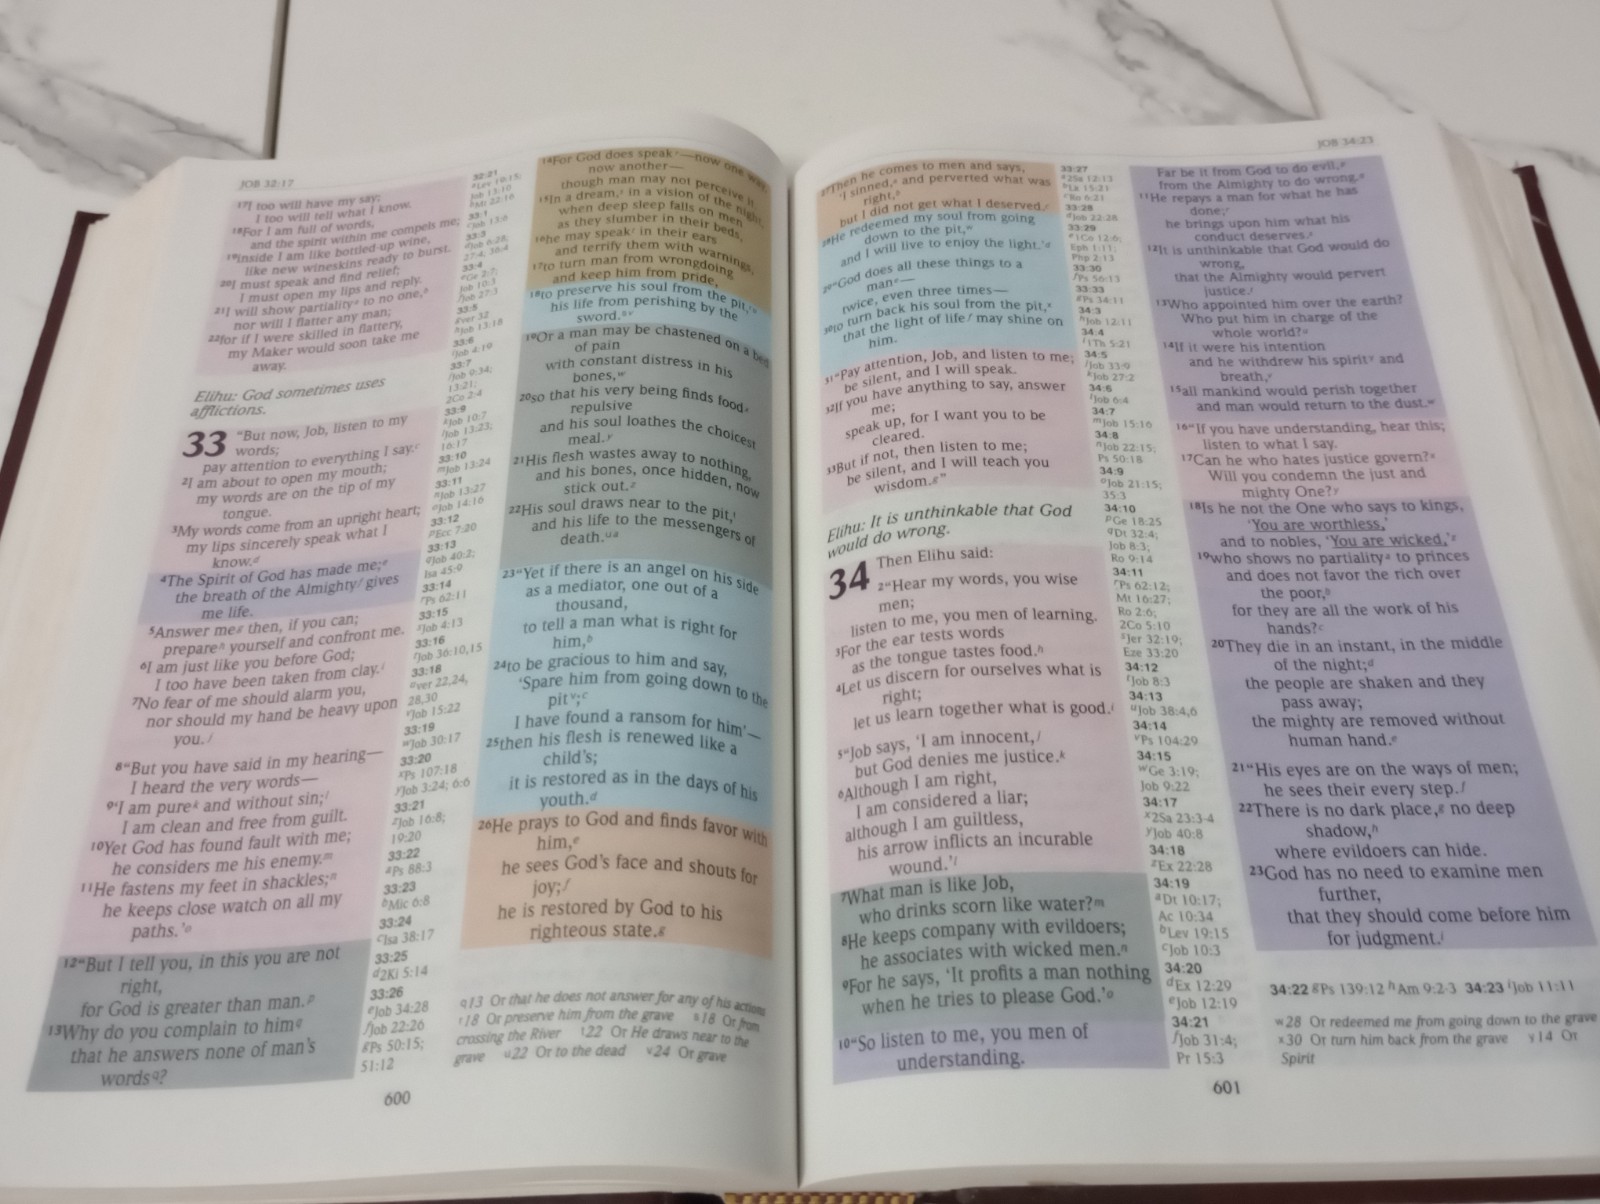 JOB 32:17
17I too will have my say;
I too will tell what I know.
18For I am full of words,
and the spirit within me compels me;
19inside I am like bottled-up wine,
like new wineskins ready to burst.
20I must speak and find relief;
I must open my lips and reply.
21I will show partiality to no one,
nor will I flatter any man;
22for if I were skilled in flattery,
my Maker would soon take me
away.
Elihu: God sometimes uses
afflictions.
33 "But now, Job, listen to my
words;
pay attention to everything I say.c
2I am about to open my mouth;
my words are on the tip of my
tongue.
3My words come from an upright heart;
my lips sincerely speak what I
know.d
4The Spirit of God has made me;e
the breath of the Almightyf gives
me life.
5Answer meg then, if you can;
prepareh yourself and confront me.
6I am just like you before God;
I too have been taken from clay.i
7No fear of me should alarm you,
nor should my hand be heavy upon
you.j
8"But you have said in my hearing—
I heard the very words—
9'I am purek and without sin;l
I am clean and free from guilt.
10Yet God has found fault with me;
he considers me his enemy.m
11He fastens my feet in shackles;n
he keeps close watch on all my
paths.'o
12"But I tell you, in this you are not
right,
for God is greater than man.p
13Why do you complain to himq
that he answers none of man's
wordsq?
32:21
Lev 19:15;
Job 13:10
Mt 22:16
33:1
Job 13:6
33:3
Job 6:28;
27:4; 36:4
33:4
Ge 2:7;
Job 10:3
Job 27:3
33:5
ver 32
Job 13:18
33:6
Job 4:19
33:7
Job 9:34;
13:21;
2Co 2:4
33:9
kJob 10:7
lJob 13:23;
16:17
33:10
mJob 13:24
33:11
nJob 13:27
oJob 14:16
33:12
pEcc 7:20
33:13
qJob 40:2;
Isa 45:9
33:14
rPs 62:11
33:15
sJob 4:13
33:16
tJob 36:10,15
33:18
uver 22,24,
28,30
vJob 15:22
33:19
wJob 30:17
33:20
xPs 107:18
yJob 3:24; 6:6
33:21
zJob 16:8;
19:20
33:22
aPs 88:3
33:23
bMic 6:8
33:24
cIsa 38:17
33:25
d2Ki 5:14
33:26
eJob 34:28
fJob 22:26
gPs 50:15;
51:12
14For God does speak—now one way,
now another—
though man may not perceive it.
15In a dream, in a vision of the night,
when deep sleep falls on men
as they slumber in their beds,
16he may speak in their ears
and terrify them with warnings,
17to turn man from wrongdoing
and keep him from pride,
18to preserve his soul from the pit,
his life from perishing by the
sword.
19Or a man may be chastened on a bed
of pain
with constant distress in his
bones,w
20so that his very being finds foodx
repulsive
and his soul loathes the choicest
meal.y
21His flesh wastes away to nothing,
and his bones, once hidden, now
stick out.z
22His soul draws near to the pit,t
and his life to the messengers of
death.ua
23"Yet if there is an angel on his side
as a mediator, one out of a
thousand,
to tell a man what is right for
him,b
24to be gracious to him and say,
'Spare him from going down to the
pitv;c
I have found a ransom for him'—
25then his flesh is renewed like a
child's;
it is restored as in the days of his
youth.d
26He prays to God and finds favor with
him,e
he sees God's face and shouts for
joy;f
he is restored by God to his
righteous state.g
q13 Or that he does not answer for any of his actions
r18 Or preserve him from the grave s18 Or from
crossing the River t22 Or He draws near to the
grave u22 Or to the dead v24 Or grave
600
JOB 34:23
27Then he comes to men and says,
'I sinned, and perverted what was
right,
but I did not get what I deserved.
28He redeemed my soul from going
down to the pit,w
and I will live to enjoy the light.'d
29"God does all these things to a
man—
twice, even three times—
30to turn back his soul from the pit,x
that the light of lifef may shine on
him.
31"Pay attention, Job, and listen to me;
be silent, and I will speak.
32If you have anything to say, answer
me;
speak up, for I want you to be
cleared.
33But if not, then listen to me;
be silent, and I will teach you
wisdom.g"
Elihu: It is unthinkable that God
would do wrong.
34 Then Elihu said:
2"Hear my words, you wise
men;
listen to me, you men of learning.
3For the ear tests words
as the tongue tastes food.h
4Let us discern for ourselves what is
right;
let us learn together what is good.i
5"Job says, 'I am innocent,j
but God denies me justice.k
6Although I am right,
I am considered a liar;
although I am guiltless,
his arrow inflicts an incurable
wound.'l
7What man is like Job,
who drinks scorn like water?m
8He keeps company with evildoers;
he associates with wicked men.n
9For he says, 'It profits a man nothing
when he tries to please God.'o
10"So listen to me, you men of
understanding.
33:27
2Sa 12:13
Lk 15:21
Ro 6:21
33:28
dJob 22:28
33:29
e1Co 12:6;
Eph 1:11;
Php 2:13
33:30
fPs 56:13
33:33
gPs 34:11
34:3
hJob 12:11
34:4
i1Th 5:21
34:5
jJob 33:9
kJob 27:2
34:6
lJob 6:4
34:7
mJob 15:16
34:8
nJob 22:15;
Ps 50:18
34:9
oJob 21:15;
35:3
34:10
pGe 18:25
qDt 32:4;
Job 8:3;
Ro 9:14
34:11
rPs 62:12;
Mt 16:27;
Ro 2:6;
2Co 5:10
sJer 32:19;
Eze 33:20
34:12
tJob 8:3
34:13
uJob 38:4,6
34:14
vPs 104:29
34:15
wGe 3:19;
Job 9:22
34:17
x2Sa 23:3-4
yJob 40:8
34:18
zEx 22:28
34:19
aDt 10:17;
Ac 10:34
bLev 19:15
cJob 10:3
34:20
dEx 12:29
eJob 12:19
34:21
fJob 31:4;
Pr 15:3
Far be it from God to do evil,p
from the Almighty to do wrong.q
11He repays a man for what he has
done;r
he brings upon him what his
conduct deserves.s
12It is unthinkable that God would do
wrong,
that the Almighty would pervert
justice.t
13Who appointed him over the earth?
Who put him in charge of the
whole world?u
14If it were his intention
and he withdrew his spirity and
breath,v
15all mankind would perish together
and man would return to the dust.w
16"If you have understanding, hear this;
listen to what I say.
17Can he who hates justice govern?x
Will you condemn the just and
mighty One?y
18Is he not the One who says to kings,
'You are worthless,'
and to nobles, 'You are wicked,'z
19who shows no partialitya to princes
and does not favor the rich over
the poor,b
for they are all the work of his
hands?c
20They die in an instant, in the middle
of the night;d
the people are shaken and they
pass away;
the mighty are removed without
human hand.e
21"His eyes are on the ways of men;
he sees their every step.f
22There is no dark place,g no deep
shadow,h
where evildoers can hide.
23God has no need to examine men
further,
that they should come before him
for judgment.i
34:22 gPs 139:12 hAm 9:2-3 34:23 iJob 11:11
w28 Or redeemed me from going down to the grave
x30 Or turn him back from the grave y14 Or
Spirit
601